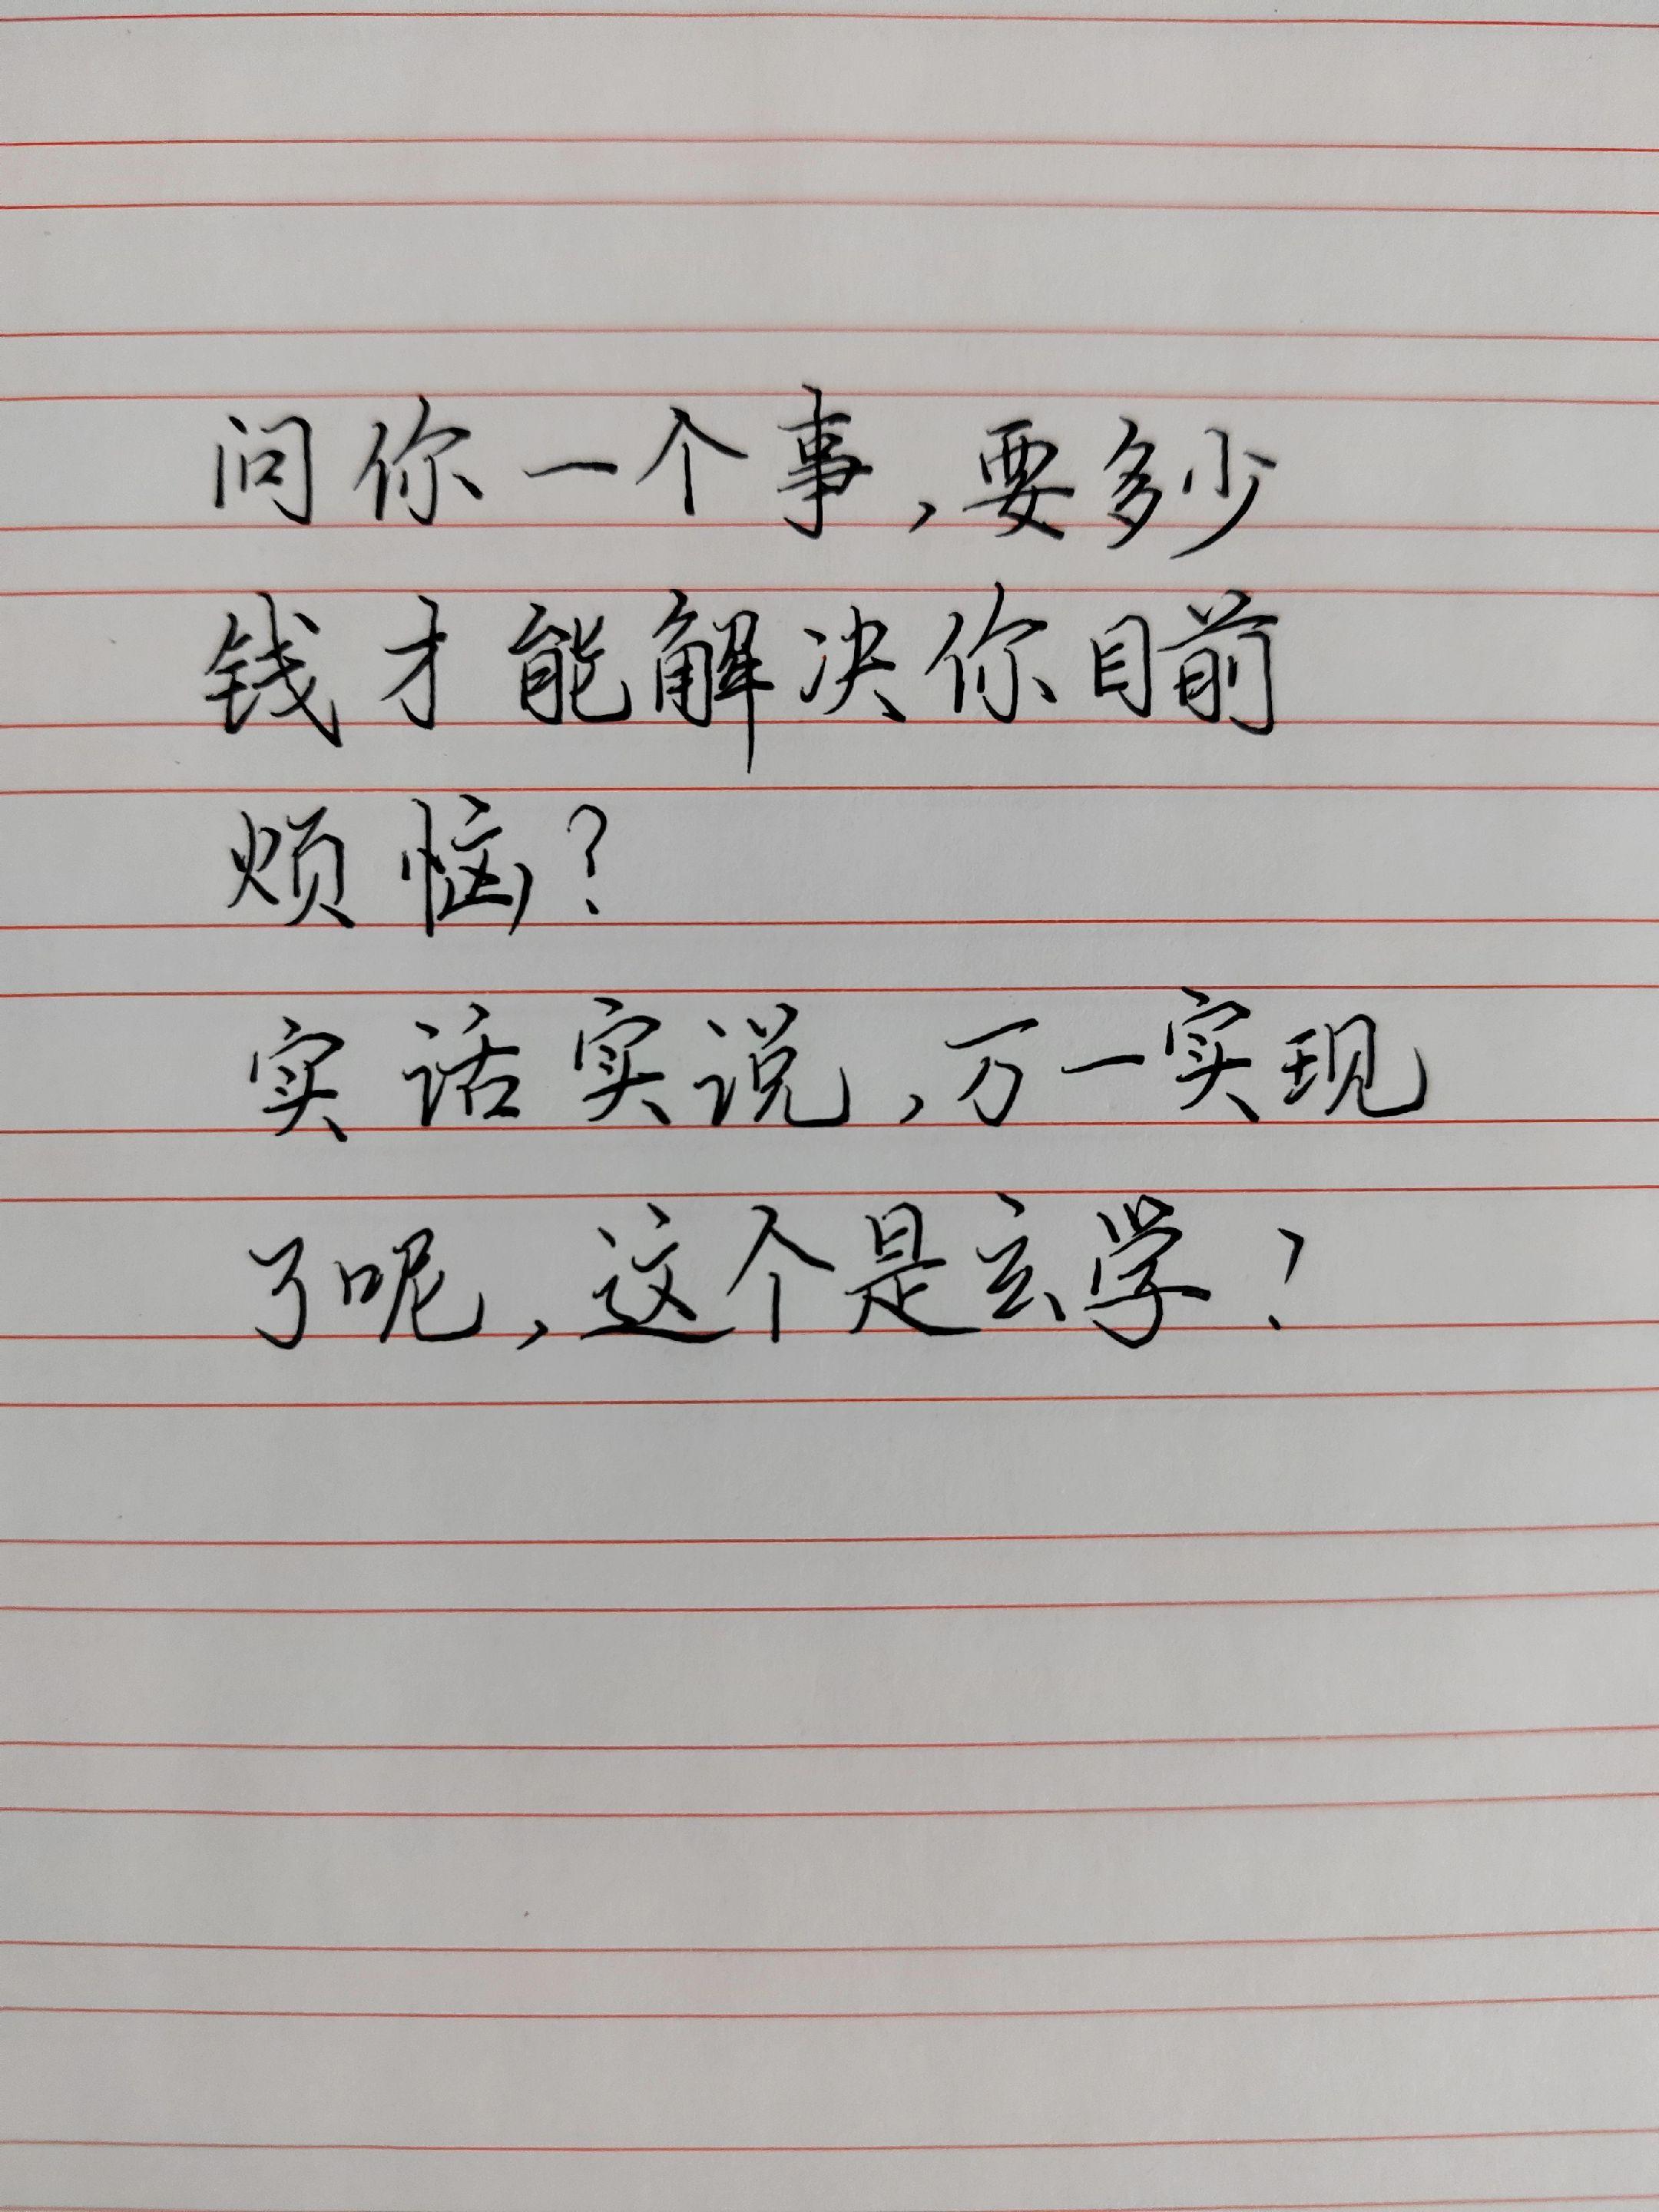 问你一个事,要多少
钱才能解决你目前
烦恼?
实话实说,万一实现
了呢,这个是玄学!